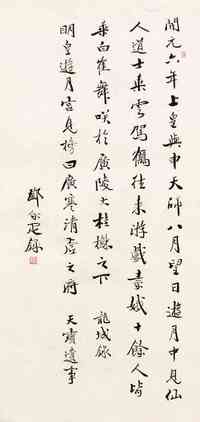 開元六年上皇與申天師八月望日遊月中見仙
人道士乘雲駕鶴往來游戲素娥十餘人皆
乘白舞咲於廣陵大桂樹之下 龍城錄
明皇遊月宮見榜曰廣寒清虛之府 天寶遺事
鄧尔疋錄